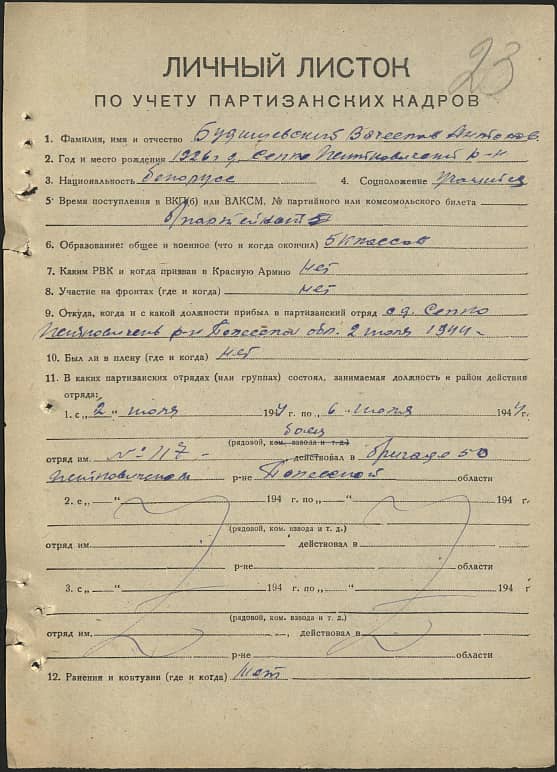 23
ЛИЧНЫЙ ЛИСТОК
ПО УЧЕТУ ПАРТИЗАНСКИХ КАДРОВ
1. Фамилия, имя и отчество Будишевский Вачеслав Антонов.
2. Год и место рождения 1926 г д. Сепко р-н
3. Национальность белорусс 4. Соцположение учащийся
5 Время поступления в ВКП(б) или ВЛКСМ, № партийного или комсомольского билета
б/партейный
6. Образование: общее и военное (что и когда окончил) 5 классов
7. Каким РВК и когда призван в Красную Армию нет
8. Участие на фронтах (где и когда) нет
9. Откуда, когда и с какой должности прибыл в партизанский отряд с д. Сепко
р-н Полесской обл. 2 июля 1944
10. Был ли в плену (где и когда) нет
11. В каких партизанских отрядах (или группах) состоял, занимаемая должность и район действия
отряда:
1. с „2" июля 1944 г. по „6" июля 1944 г.
боец
(рядовой, ком. взвода и т. д.)
отряд им. № 117 действовал в бригаде 50
р-не Полесской области
2. с „ " 194 г. по „ " 194 г
(рядовой, ком. взвода и т. д.)
отряд им. действовал в
р-не области
3. с „ " 194 г. по „ " 194 г
(рядовой, ком. взвода и т. д.)
отряд им. , действовал в
р-не области
12. Ранения и контузии (где и когда) нет